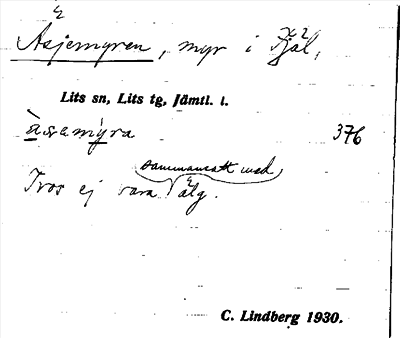 Åsjemyren, myr i Fjäl,
Lits sn, Lits tg, Jämtl. l.
åsemýra 376
sammansatt med
Tros ej vara älg.
C. Lindberg 1930.